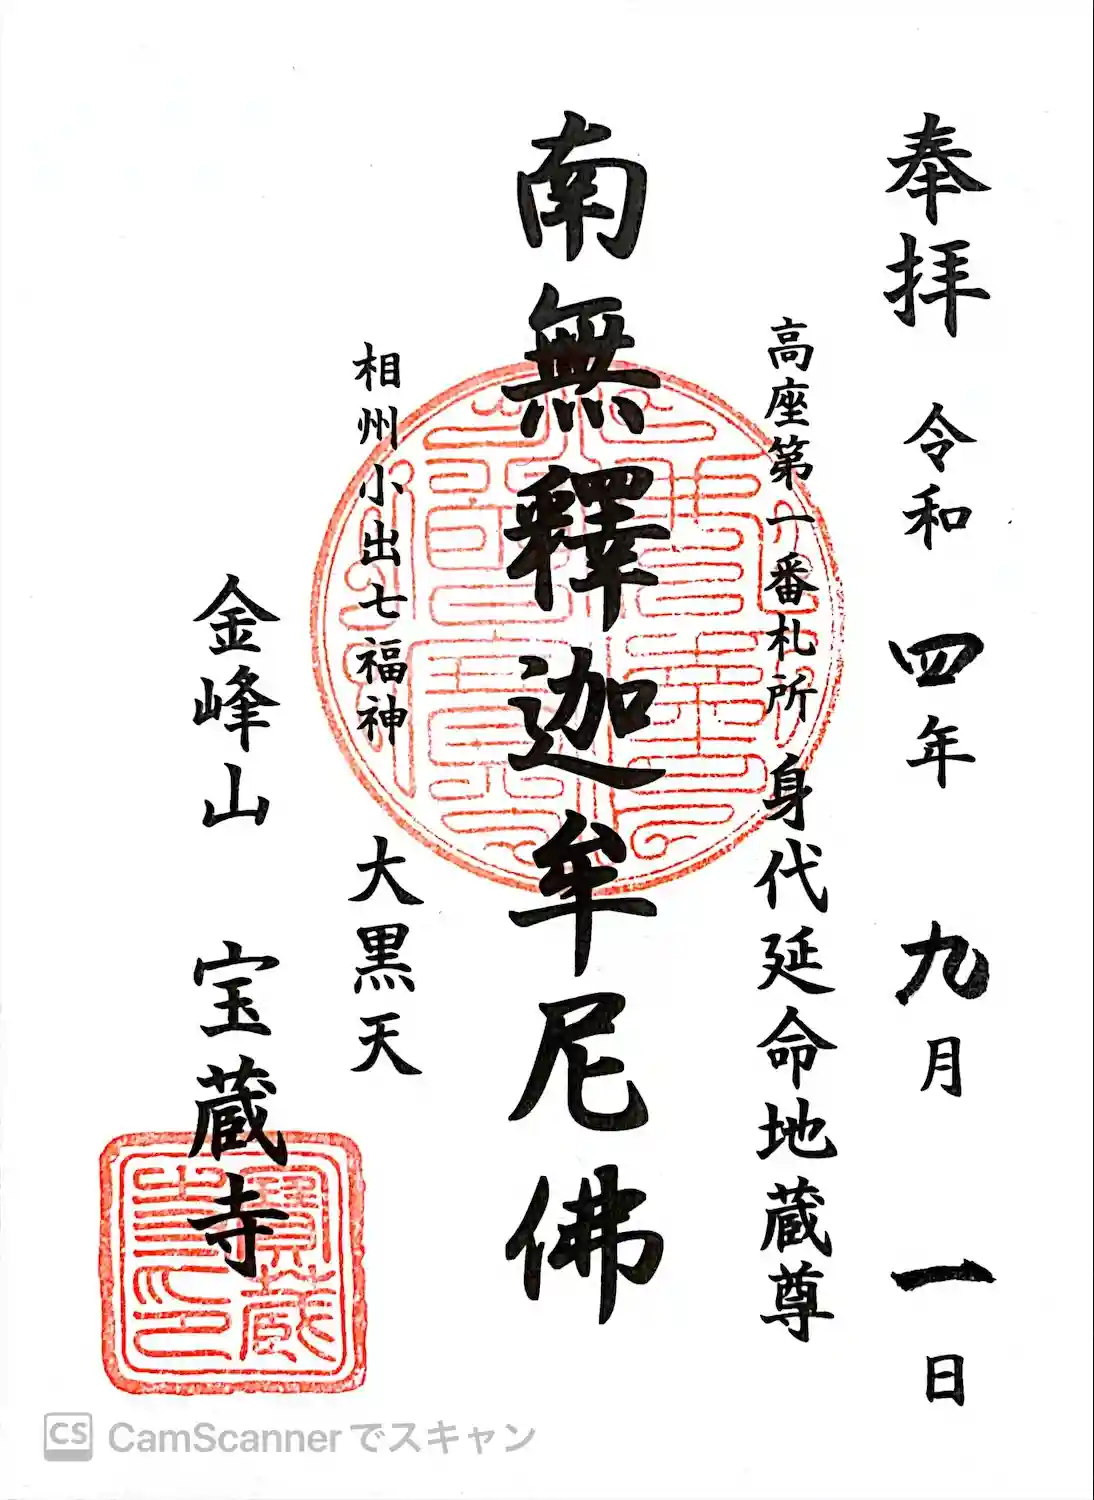 奉拝 令和 四年 九月 一日
高座第一番札所 身代延命地蔵尊
南無釋迦牟尼佛
相州小出七福神 大黒天
金峰山 宝蔵寺
CS CamScannerでスキャン